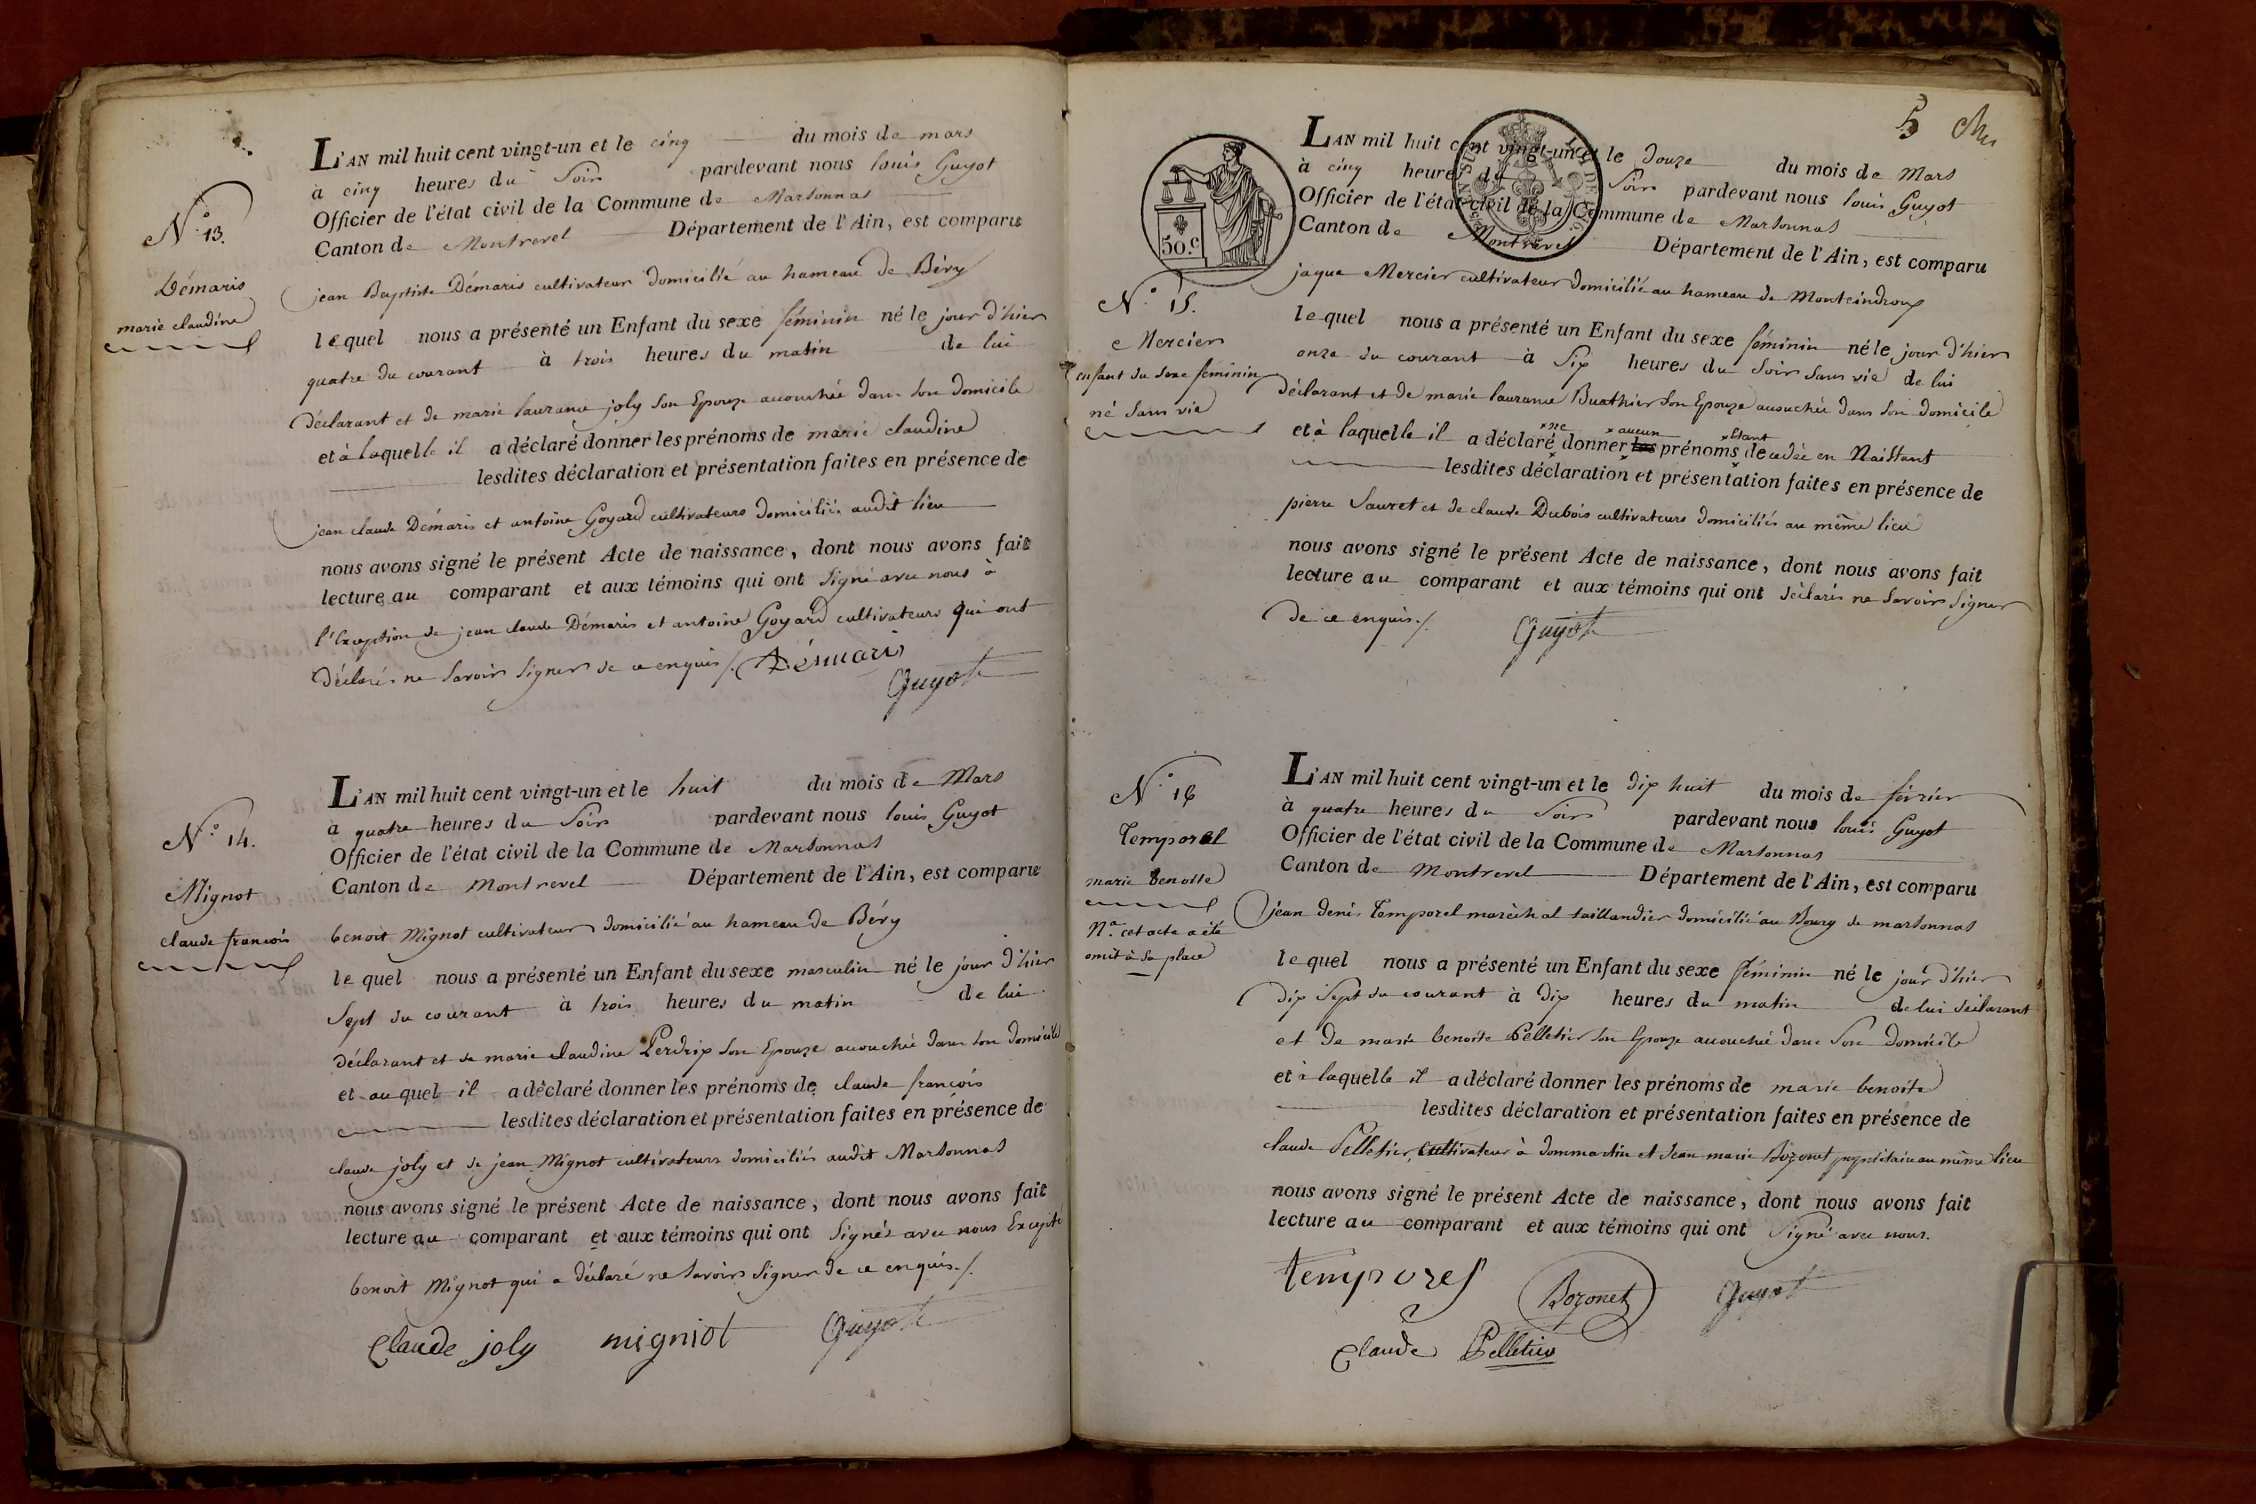 N.° 13.
Démaris
marie claudine
L'AN mil huit cent vingt-un et le cinq du mois de mars
à cinq heures du Soir pardevant nous louis Guyot
Officier de l'état civil de la Commune de Marsonnas
Canton de Montrevel Département de l'Ain, est comparu
jean Baptiste Démaris cultivateur domicilié au hameau de Béry
lequel nous a présenté un Enfant du sexe féminin né le jour d'hier
quatre du courant à trois heures du matin de lui
déclarant et de marie laurance joly Son Epouze accouchée dans son domicile
et à laquelle il a déclaré donner les prénoms de marie claudine
lesdites déclaration et présentation faites en présence de
jean claude Démaris et antoine Goyard cultivateurs domiciliés audit lieu
nous avons signé le présent Acte de naissance, dont nous avons fait
lecture au comparant et aux témoins qui ont Signé avec nous à
l'Exception de jean claude Démaris et antoine Goyard cultivateurs qui ont
déclarés ne Savoir Signer de ce enquis ./.
Démaris
Guyot
N.° 14.
Mignot
claude francois
L'AN mil huit cent vingt-un et le huit du mois de Mars
à quatre heures du Soir pardevant nous louis Guyot
Officier de l'état civil de la Commune de Marsonnas
Canton de Montrevel Département de l'Ain, est comparu
benoit Mignot cultivateur domicilié au hameau de Béry
lequel nous a présenté un Enfant du sexe masculin né le jour d'hier
Sept du courant à trois heures du matin de lui
déclarant et de marie claudine Perdrix Son Epouze accouchée dans son domicile
et auquel il a déclaré donner les prénoms de claude françois
lesdites déclaration et présentation faites en présence de
claude joly et de jean Mignot cultivateurs domiciliés audit Marsonnas
nous avons signé le présent Acte de naissance, dont nous avons fait
lecture au comparant et aux témoins qui ont Signés avec nous Excepté
benoit Mignot qui a déclaré ne Savoir Signer de ce enquis ./.
Claude joly migniot Guyot
5
50.c
N.° 15.
Mercier
enfant du sexe féminin
né Sans vie
L'AN mil huit cent vingt-un et le Douze du mois de Mars
à cinq heures du Soir pardevant nous louis Guyot
Officier de l'état civil de la Commune de Marsonnas
Canton de Montrevel Département de l'Ain, est comparu
jaque Mercier cultivateur domicilié au hameau de Monteindroux
lequel nous a présenté un Enfant du sexe féminin né le jour d'hier
onze du courant à Six heures du Soir Sans vie de lui
déclarant et de marie laurance Buathier Son Epouze accouchée dans Son domicile
ne aucun Etant
et à laquelle il a déclaré donner les prénoms decedée en Naissant
lesdites déclaration et présentation faites en présence de
pierre Sauret et de claude Dubois cultivateurs domiciliés au même lieu
nous avons signé le présent Acte de naissance, dont nous avons fait
lecture au comparant et aux témoins qui ont déclarés ne Savoir Signer
de ce enquis ./. Guyot
N.° 16
Temporel
marie benoite
N.a cet acte a été
omit à Sa place
L'AN mil huit cent vingt-un et le Dix huit du mois de février
à quatre heures du Soir pardevant nous louis Guyot
Officier de l'état civil de la Commune de Marsonnas
Canton de Montrevel Département de l'Ain, est comparu
jean denis Temporel maréchal taillandier domicilié au Bourg de marsonnas
lequel nous a présenté un Enfant du sexe féminin né le jour d'hier
dix Sept du courant à Dix heures du matin de lui déclarant
et de marie benoite Pelletier Son Epouze accouchée dans Son domicile
et à laquelle il a déclaré donner les prénoms de marie benoite
lesdites déclaration et présentation faites en présence de
claude Pelletier, cultivateur à dommartin et Jean marie Bozonet propriétaire au même lieu
nous avons signé le présent Acte de naissance, dont nous avons fait
lecture au comparant et aux témoins qui ont Signé avec nous.
temporel Bozonet Guyot
Claude Pelletier